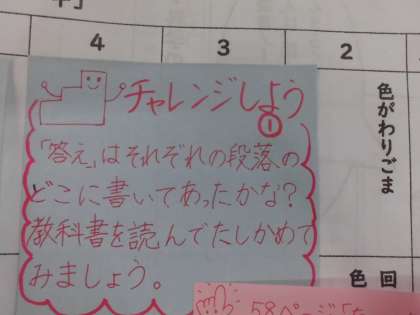 4
3
2
チャレンジしよう
①
「答え」はそれぞれの段落の
どこに書いてあったかな?
教科書を読んでたしかめて
みましょう。
色がわりごま
回
色
58ページ